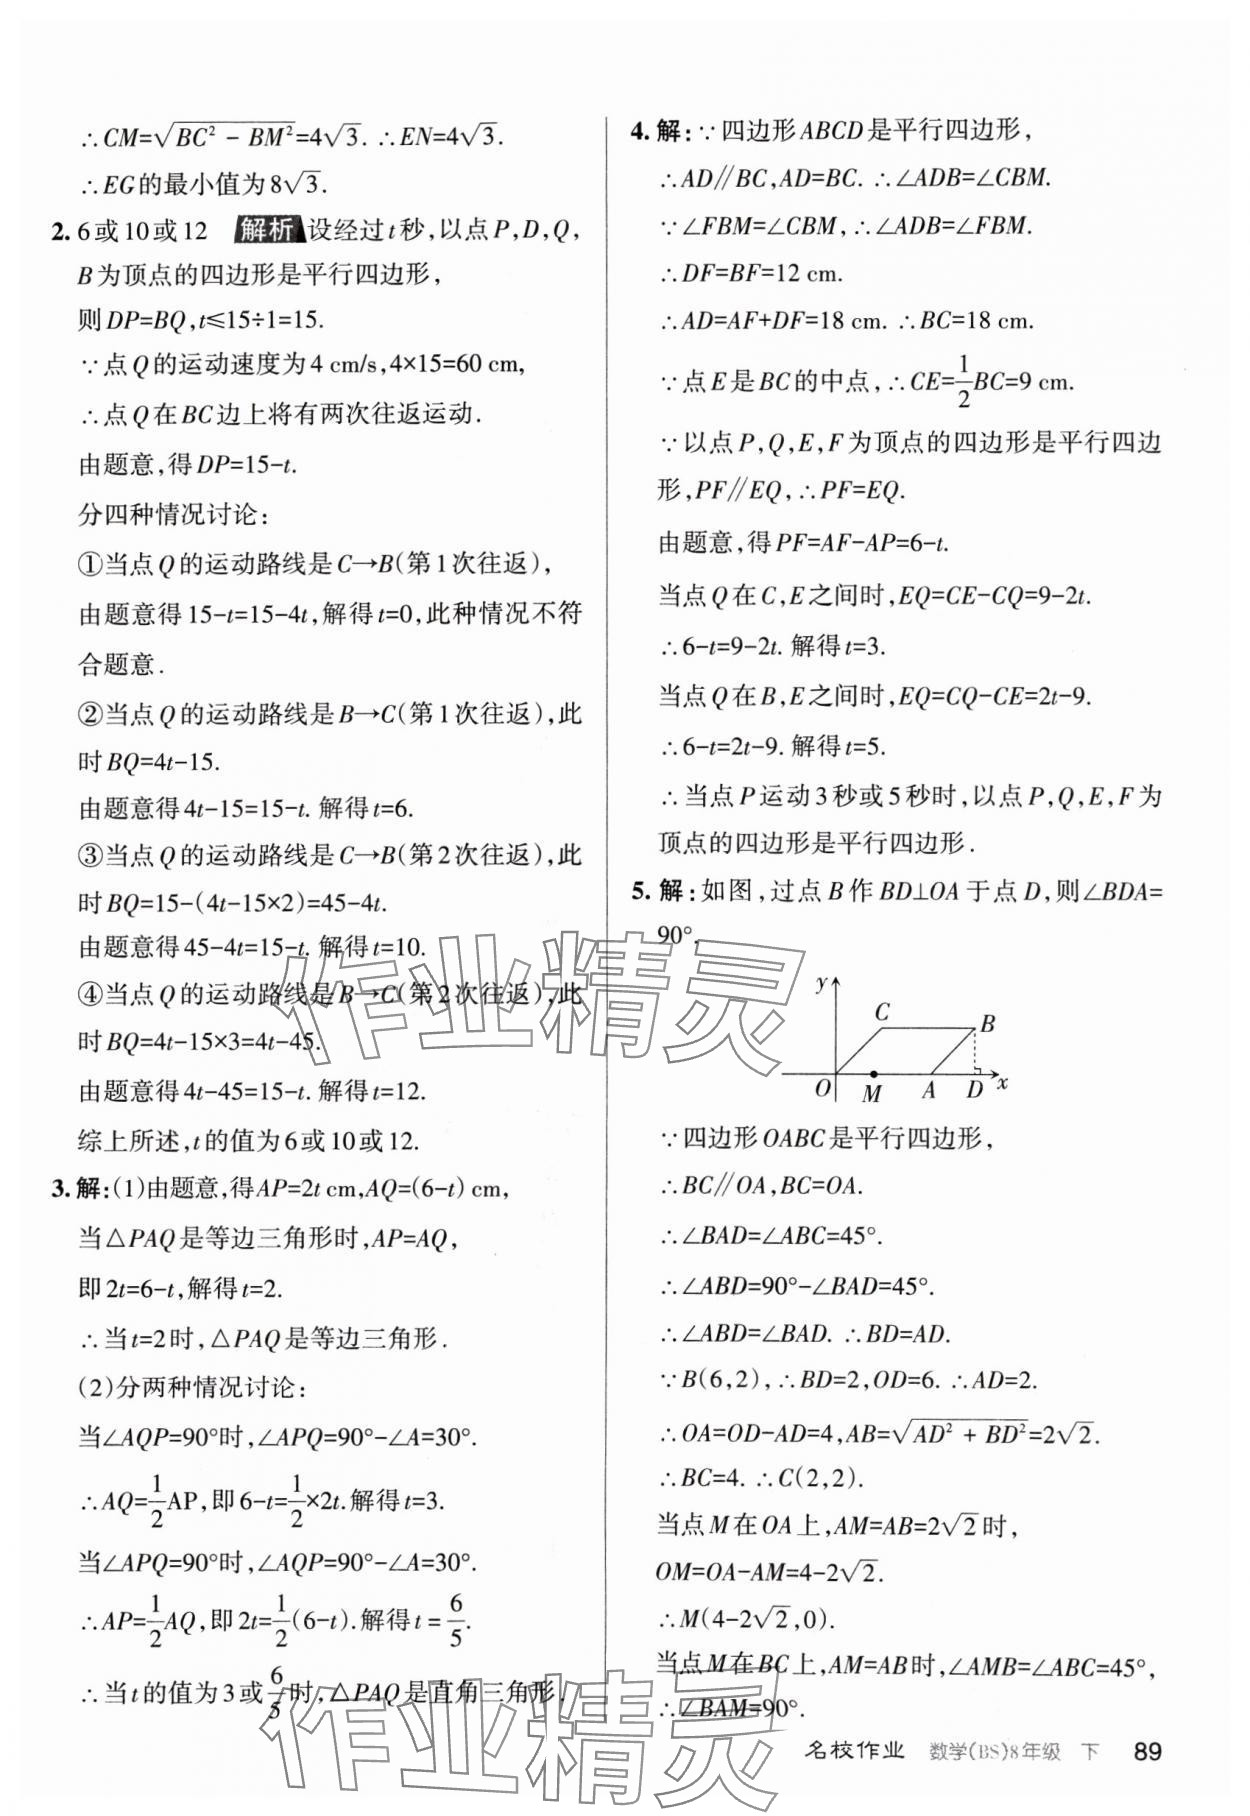 ∴CM=√(BC² − BM²)=4√3. ∴EN=4√3.
∴EG的最小值为8√3.
2. 6或10或12 解析 设经过t秒,以点P,D,Q,
B为顶点的四边形是平行四边形,
则DP=BQ,t≤15÷1=15.
∵点Q的运动速度为4 cm/s,4×15=60 cm,
∴点Q在BC边上将有两次往返运动.
由题意,得DP=15-t.
分四种情况讨论:
①当点Q的运动路线是C→B(第1次往返),
由题意得15-t=15-4t,解得t=0,此种情况不符
合题意.
②当点Q的运动路线是B→C(第1次往返),此
时BQ=4t-15.
由题意得4t-15=15-t. 解得t=6.
③当点Q的运动路线是C→B(第2次往返),此
时BQ=15-(4t-15×2)=45-4t.
由题意得45-4t=15-t. 解得t=10.
④当点Q的运动路线是B→C(第2次往返),此
时BQ=4t-15×3=4t-45.
由题意得4t-45=15-t. 解得t=12.
综上所述,t的值为6或10或12.
3. 解:(1)由题意,得AP=2t cm,AQ=(6-t) cm,
当△PAQ是等边三角形时,AP=AQ,
即2t=6-t,解得t=2.
∴当t=2时,△PAQ是等边三角形.
(2)分两种情况讨论:
当∠AQP=90°时,∠APQ=90°-∠A=30°.
∴AQ=1/2AP,即6-t=1/2×2t.解得t=3.
当∠APQ=90°时,∠AQP=90°-∠A=30°.
∴AP=1/2AQ,即2t=1/2(6-t).解得t = 6/5.
∴当t的值为3或6/5时,△PAQ是直角三角形.
4. 解:∵四边形ABCD是平行四边形,
∴AD∥BC,AD=BC. ∴∠ADB=∠CBM.
∵∠FBM=∠CBM,∴∠ADB=∠FBM.
∴DF=BF=12 cm.
∴AD=AF+DF=18 cm. ∴BC=18 cm.
∵点E是BC的中点,∴CE=1/2BC=9 cm.
∵以点P,Q,E,F为顶点的四边形是平行四边
形,PF∥EQ,∴PF=EQ.
由题意,得PF=AF-AP=6-t.
当点Q在C,E之间时,EQ=CE-CQ=9-2t.
∴6-t=9-2t. 解得t=3.
当点Q在B,E之间时,EQ=CQ-CE=2t-9.
∴6-t=2t-9. 解得t=5.
∴当点P运动3秒或5秒时,以点P,Q,E,F为
顶点的四边形是平行四边形.
5. 解:如图,过点B作BD⊥OA于点D,则∠BDA=
90°.
y
C
B
O M A D x
∵四边形OABC是平行四边形,
∴BC∥OA,BC=OA.
∴∠BAD=∠ABC=45°.
∴∠ABD=90°-∠BAD=45°.
∴∠ABD=∠BAD. ∴BD=AD.
∵B(6,2),∴BD=2,OD=6. ∴AD=2.
∴OA=OD-AD=4,AB=√(AD² + BD²)=2√2.
∴BC=4. ∴C(2,2).
当点M在OA上,AM=AB=2√2时,
OM=OA-AM=4-2√2.
∴M(4-2√2,0).
当点M在BC上,AM=AB时,∠AMB=∠ABC=45°,
∴∠BAM=90°.
作业精灵
作业精灵
名校作业 数学(BS)8年级 下 89